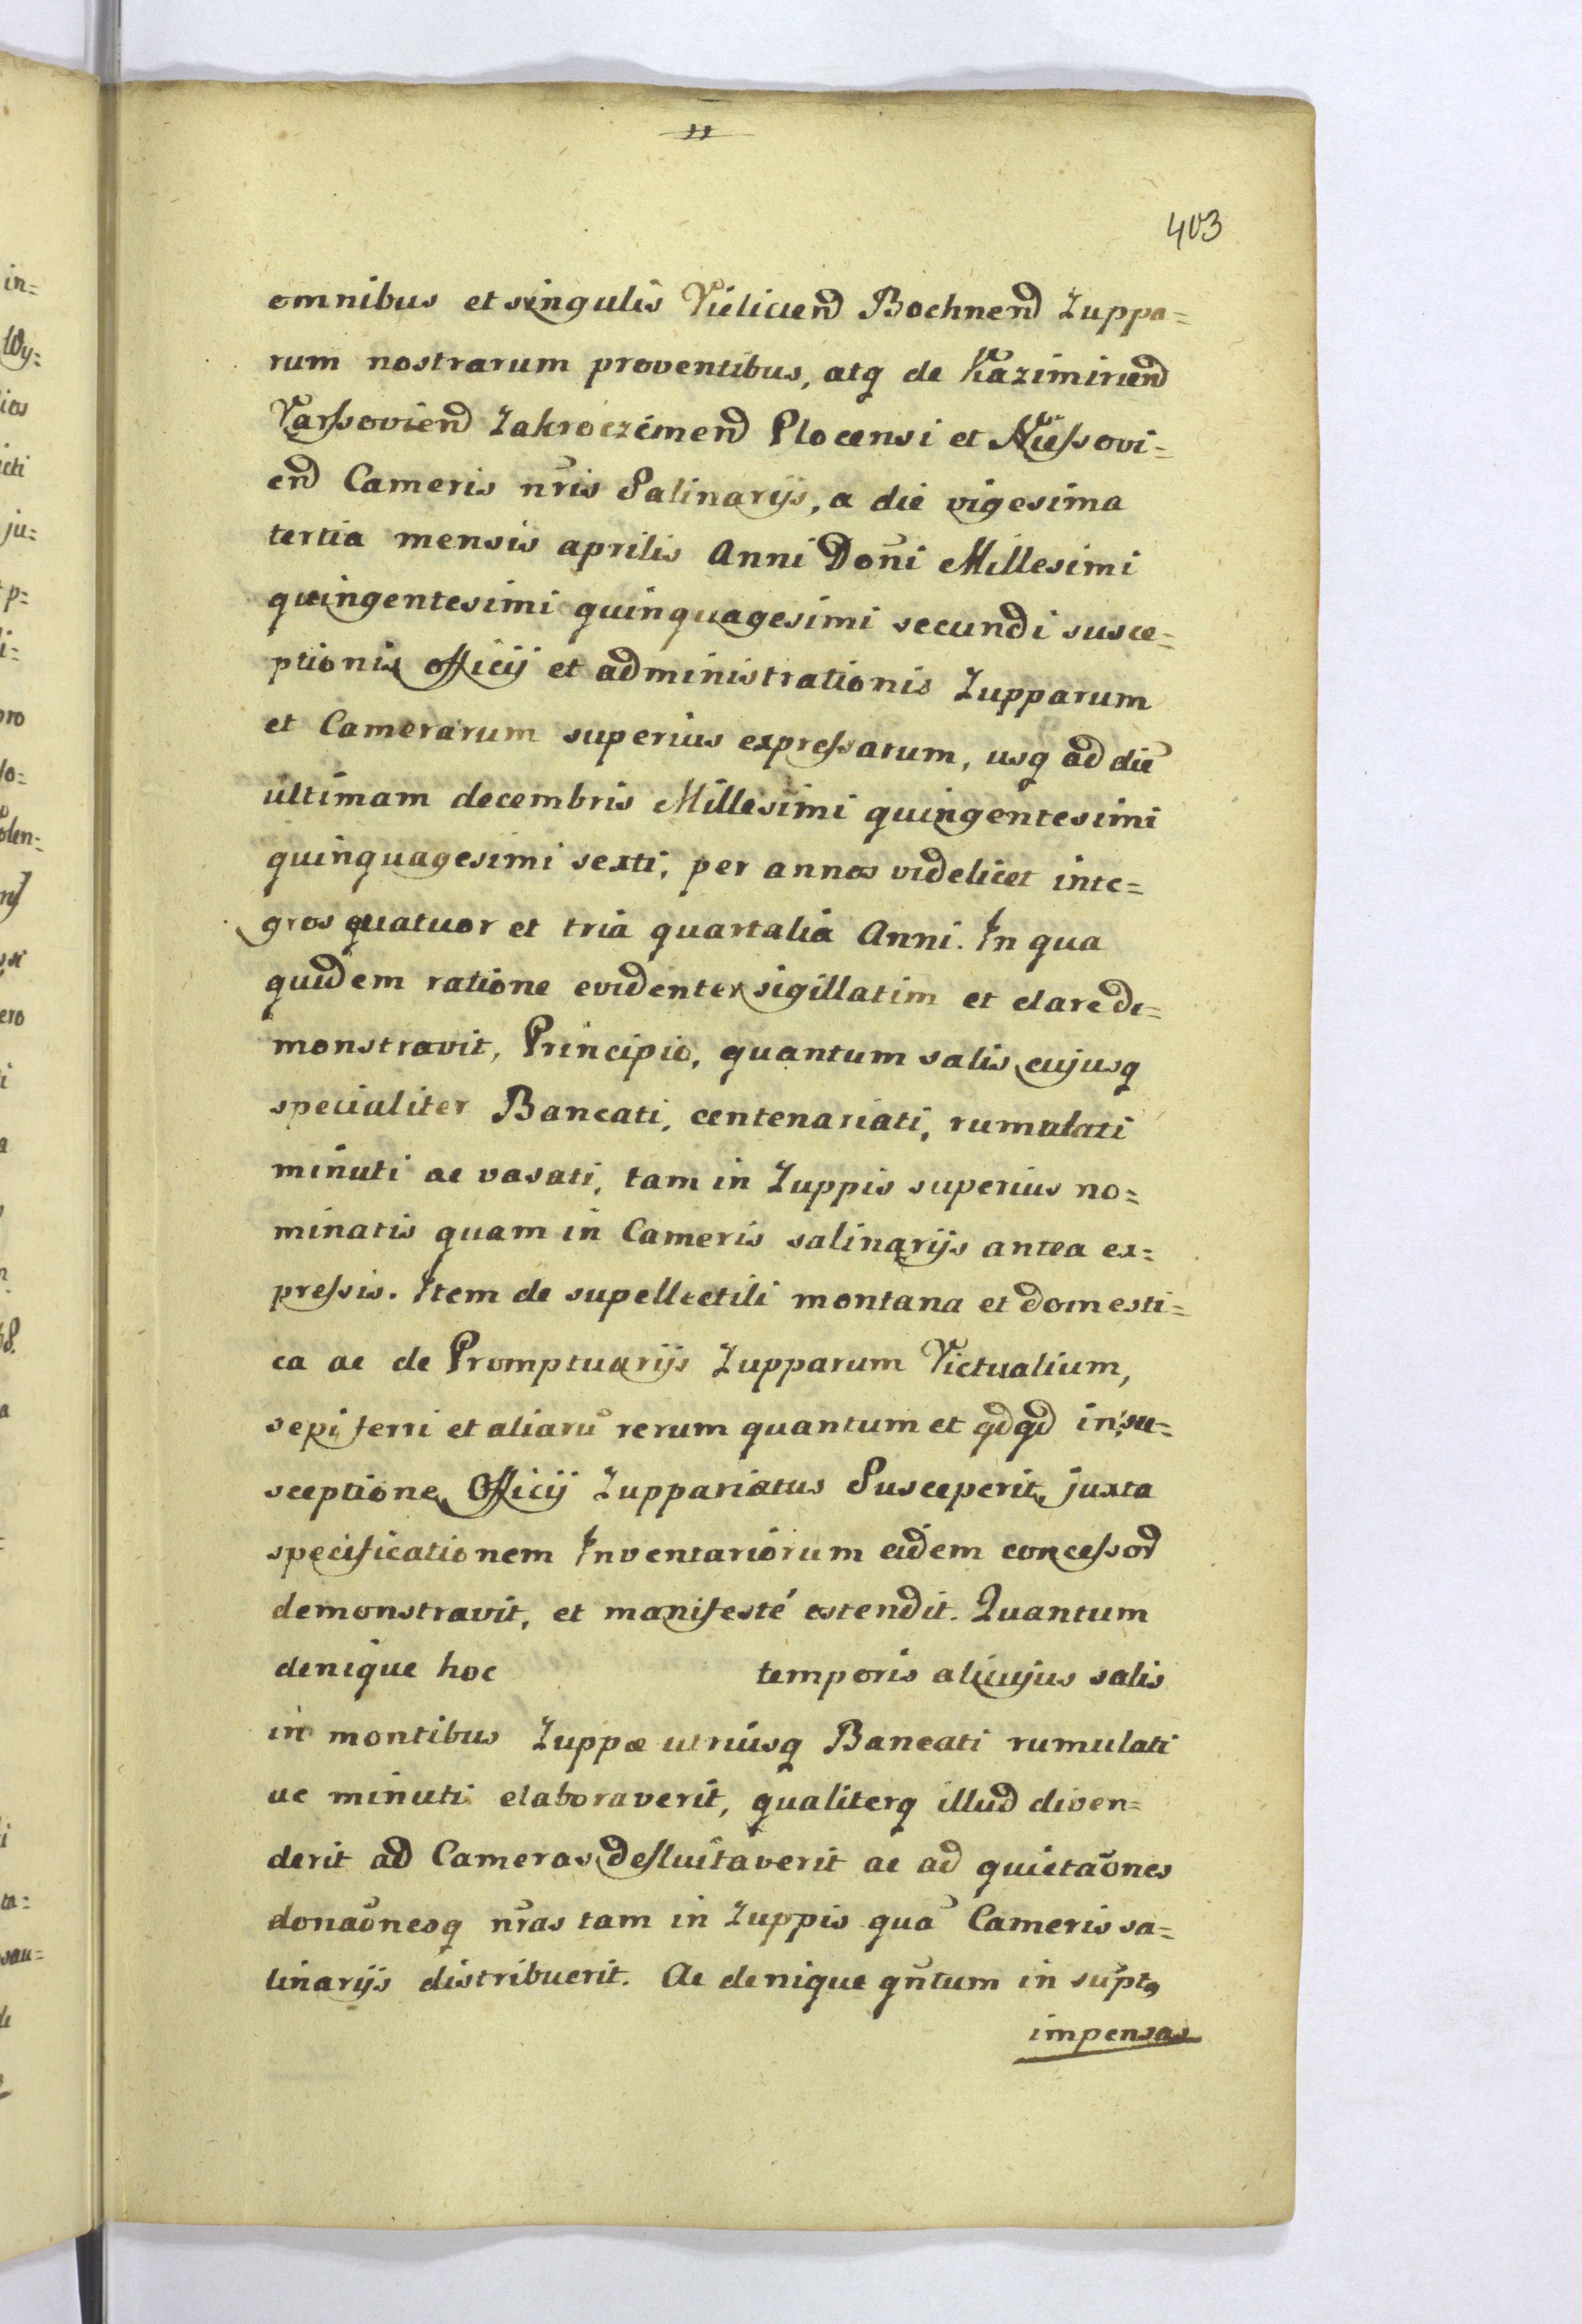 11
403
omnibus et singulis Vieliciend Bochnend Zuppa=
rum nostrarum proventibus, atq de Kazimiriend
Varssoviend Zakroczimend Plocensi et Niessovi=
end Cameris nris Salinarijs, a die vigesima
tertia mensis aprilis Anni Doni Millesimi
quingentesimi quinquagesimi secundi susce=
ptionis officij et administrationis Zupparum
et Camerarum superius expressarum, usq ad diē
ultimam decembris Millesimi quingentesimi
quinquagesimi sexti, per annos videlicet inte=
gros quatuor et tria quartalia Anni. In qua
quidem ratione evidenter sigillatim et clare de=
monstravit, Principio, quantum salis cujusq
specialiter Bancati, centenariati, rumulati
minuti ac vasati, tam in Zuppis superius no=
minatis quam in Cameris salinarijs antea ex=
pressis. Item de supellectili montana et domesti=
ca ac de Promptuarijs Zupparum Victualium,
sepi ferri et aliarū rerum quantum et qdqd in su=
sceptione Officij Zuppariatus Susceperit, juxta
specificationem Inventariorum eidem concessord
demonstravit, et manifesté ostendit. Quantum
denique hoc temporis alicujus salis
in montibus Zuppæ utriusq Bancati rumulati
ac minuti elaboraverit, qualiterq illud diven=
derit ad Cameras defluitaverit ac ad quietaōnes
donaōnesq nras tam in Zuppis quā Cameris sa=
linarijs distribuerit. Ac denique qntum in supt,
impensas